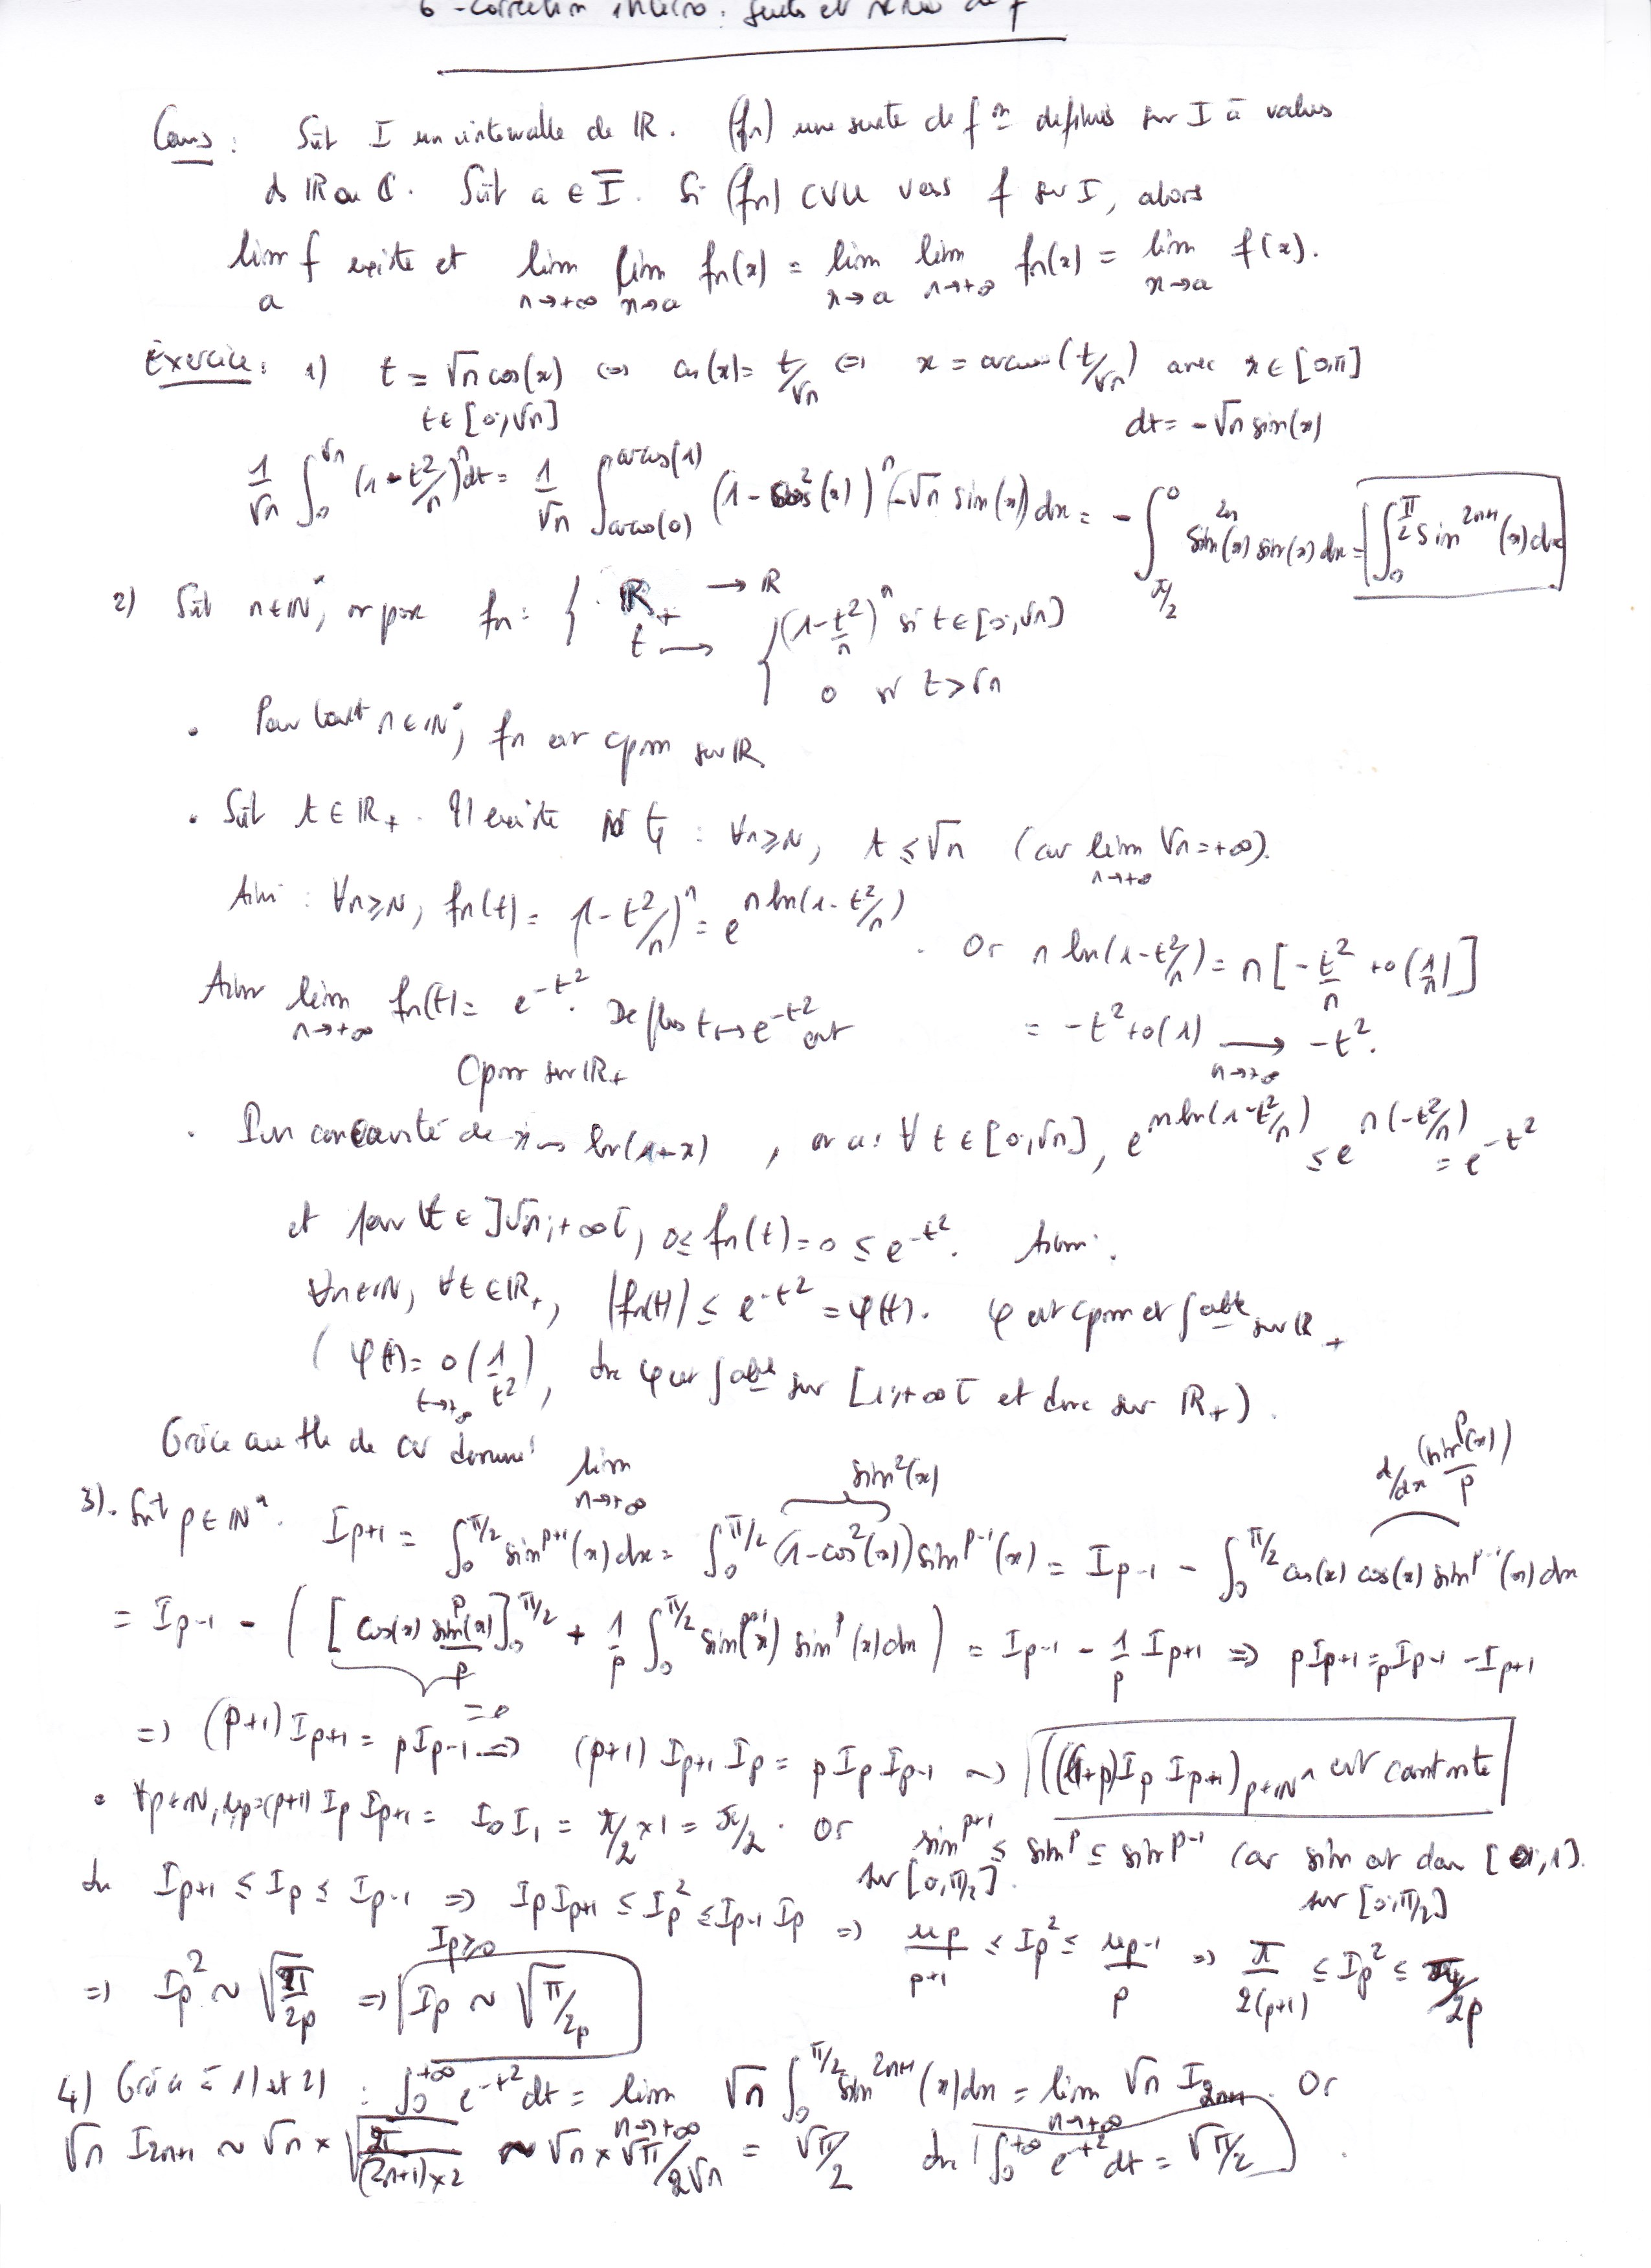 6 - Correction interro : suites et séries de f
Cours : Soit I un intervalle de ℝ. (fn) une suite de f^n définies sur I à valeurs
ds ℝ ou ℂ. Soit a ∈ Ī. Si (fn) CVU vers f sur I, alors
lim_a f existe et lim_{n→+∞} lim_{x→a} fn(x) = lim_{x→a} lim_{n→+∞} fn(x) = lim_{x→a} f(x).
Exercice : 1) t = √n cos(x) ⇔ cos(x) = t/√n ⇔ x = arccos(t/√n) avec x ∈ [0,π]
t ∈ [0;√n] dt = -√n sin(x)
1/√n ∫_0^{√n} (1 - t²/n)^n dt = 1/√n ∫_{arccos(0)}^{arccos(1)} (1 - cos²(x))^n (-√n sin(x)) dx = - ∫_{π/2}^0 sin^{2n}(x) sin(x) dx = ∫_0^{π/2} sin^{2n+1}(x) dx
2) Soit n ∈ ℕ*, on pose fn : { ℝ+ → ℝ
t → { (1 - t²/n)^n si t ∈ [0;√n]
0 si t > √n
• Pour tout n ∈ ℕ*, fn est cpm sur ℝ.
• Soit t ∈ ℝ+. Il existe N tq : ∀n ≥ N, t ≤ √n (car lim_{n→+∞} √n = +∞).
Ainsi : ∀n ≥ N, fn(t) = (1 - t²/n)^n = e^{n ln(1 - t²/n)}. Or n ln(1 - t²/n) = n [-t²/n + o(1/n)]
= -t² + o(1) →_{n→+∞} -t².
Ainsi lim_{n→+∞} fn(t) = e^{-t²}. De plus t ↦ e^{-t²} est
Cpm sur ℝ+
• Par concavité de x → ln(1+x), on a : ∀ t ∈ [0;√n], e^{n ln(1 - t²/n)} ≤ e^{n(-t²/n)} = e^{-t²}
et pour ∀t ∈ ]√n;+∞[, 0 ≤ fn(t) = 0 ≤ e^{-t²}. Ainsi :
∀n ∈ ℕ, ∀t ∈ ℝ+, |fn(t)| ≤ e^{-t²} = φ(t). φ est cpm et ∫able sur ℝ+
(φ(t) =_{t→+∞} o(1/t²), dc φ est ∫able sur [1;+∞[ et donc sur ℝ+).
Grâce au th de cv dominé lim_{n→+∞}
3) • Soit p ∈ ℕ*. I_{p+1} = ∫_0^{π/2} sin^{p+1}(x) dx = ∫_0^{π/2} (1 - cos²(x)) sin^{p-1}(x) = I_{p-1} - ∫_0^{π/2} cos(x) cos(x) sin^{p-1}(x) dx
sin²(x) d/dx (sin^p(x)/p)
= I_{p-1} - ( [cos(x) sin^p(x)/p]_0^{π/2} + 1/p ∫_0^{π/2} sin(x) sin^p(x) dx ) = I_{p-1} - 1/p I_{p+1} ⇒ p I_{p+1} = p I_{p-1} - I_{p+1}
= 0
⇒ (p+1) I_{p+1} = p I_{p-1} ⇒ (p+1) I_{p+1} I_p = p I_p I_{p-1} ⇒ ((1+p) I_p I_{p+1})_{p∈ℕ*} est constante
• ∀p ∈ ℕ, u_p = (p+1) I_p I_{p+1} = I_0 I_1 = π/2 × 1 = π/2. Or sin^{p+1} ≤ sin^p ≤ sin^{p-1} (car sin est dans [0,1].
sur [0,π/2]. sur [0;π/2]
dc I_{p+1} ≤ I_p ≤ I_{p-1} ⇒ I_p I_{p+1} ≤ I_p² ≤ I_{p-1} I_p ⇒ u_p/(p+1) ≤ I_p² ≤ u_{p-1}/p ⇒ π/(2(p+1)) ≤ I_p² ≤ π/2p
⇒ I_p² ~ √(π/2p) ⇒ (I_p ≥ 0) I_p ~ √(π/2p)
4) Grâce à 1) et 2) : ∫_0^{+∞} e^{-t²} dt = lim_{n→+∞} √n ∫_0^{π/2} sin^{2n+1}(x) dx = lim_{n→+∞} √n I_{2n+1}. Or
√n I_{2n+1} ~ √n × √(π/((2n+1)×2)) ~ √n × √π/2√n = √π/2 dc ∫_0^{+∞} e^{-t²} dt = √π/2.